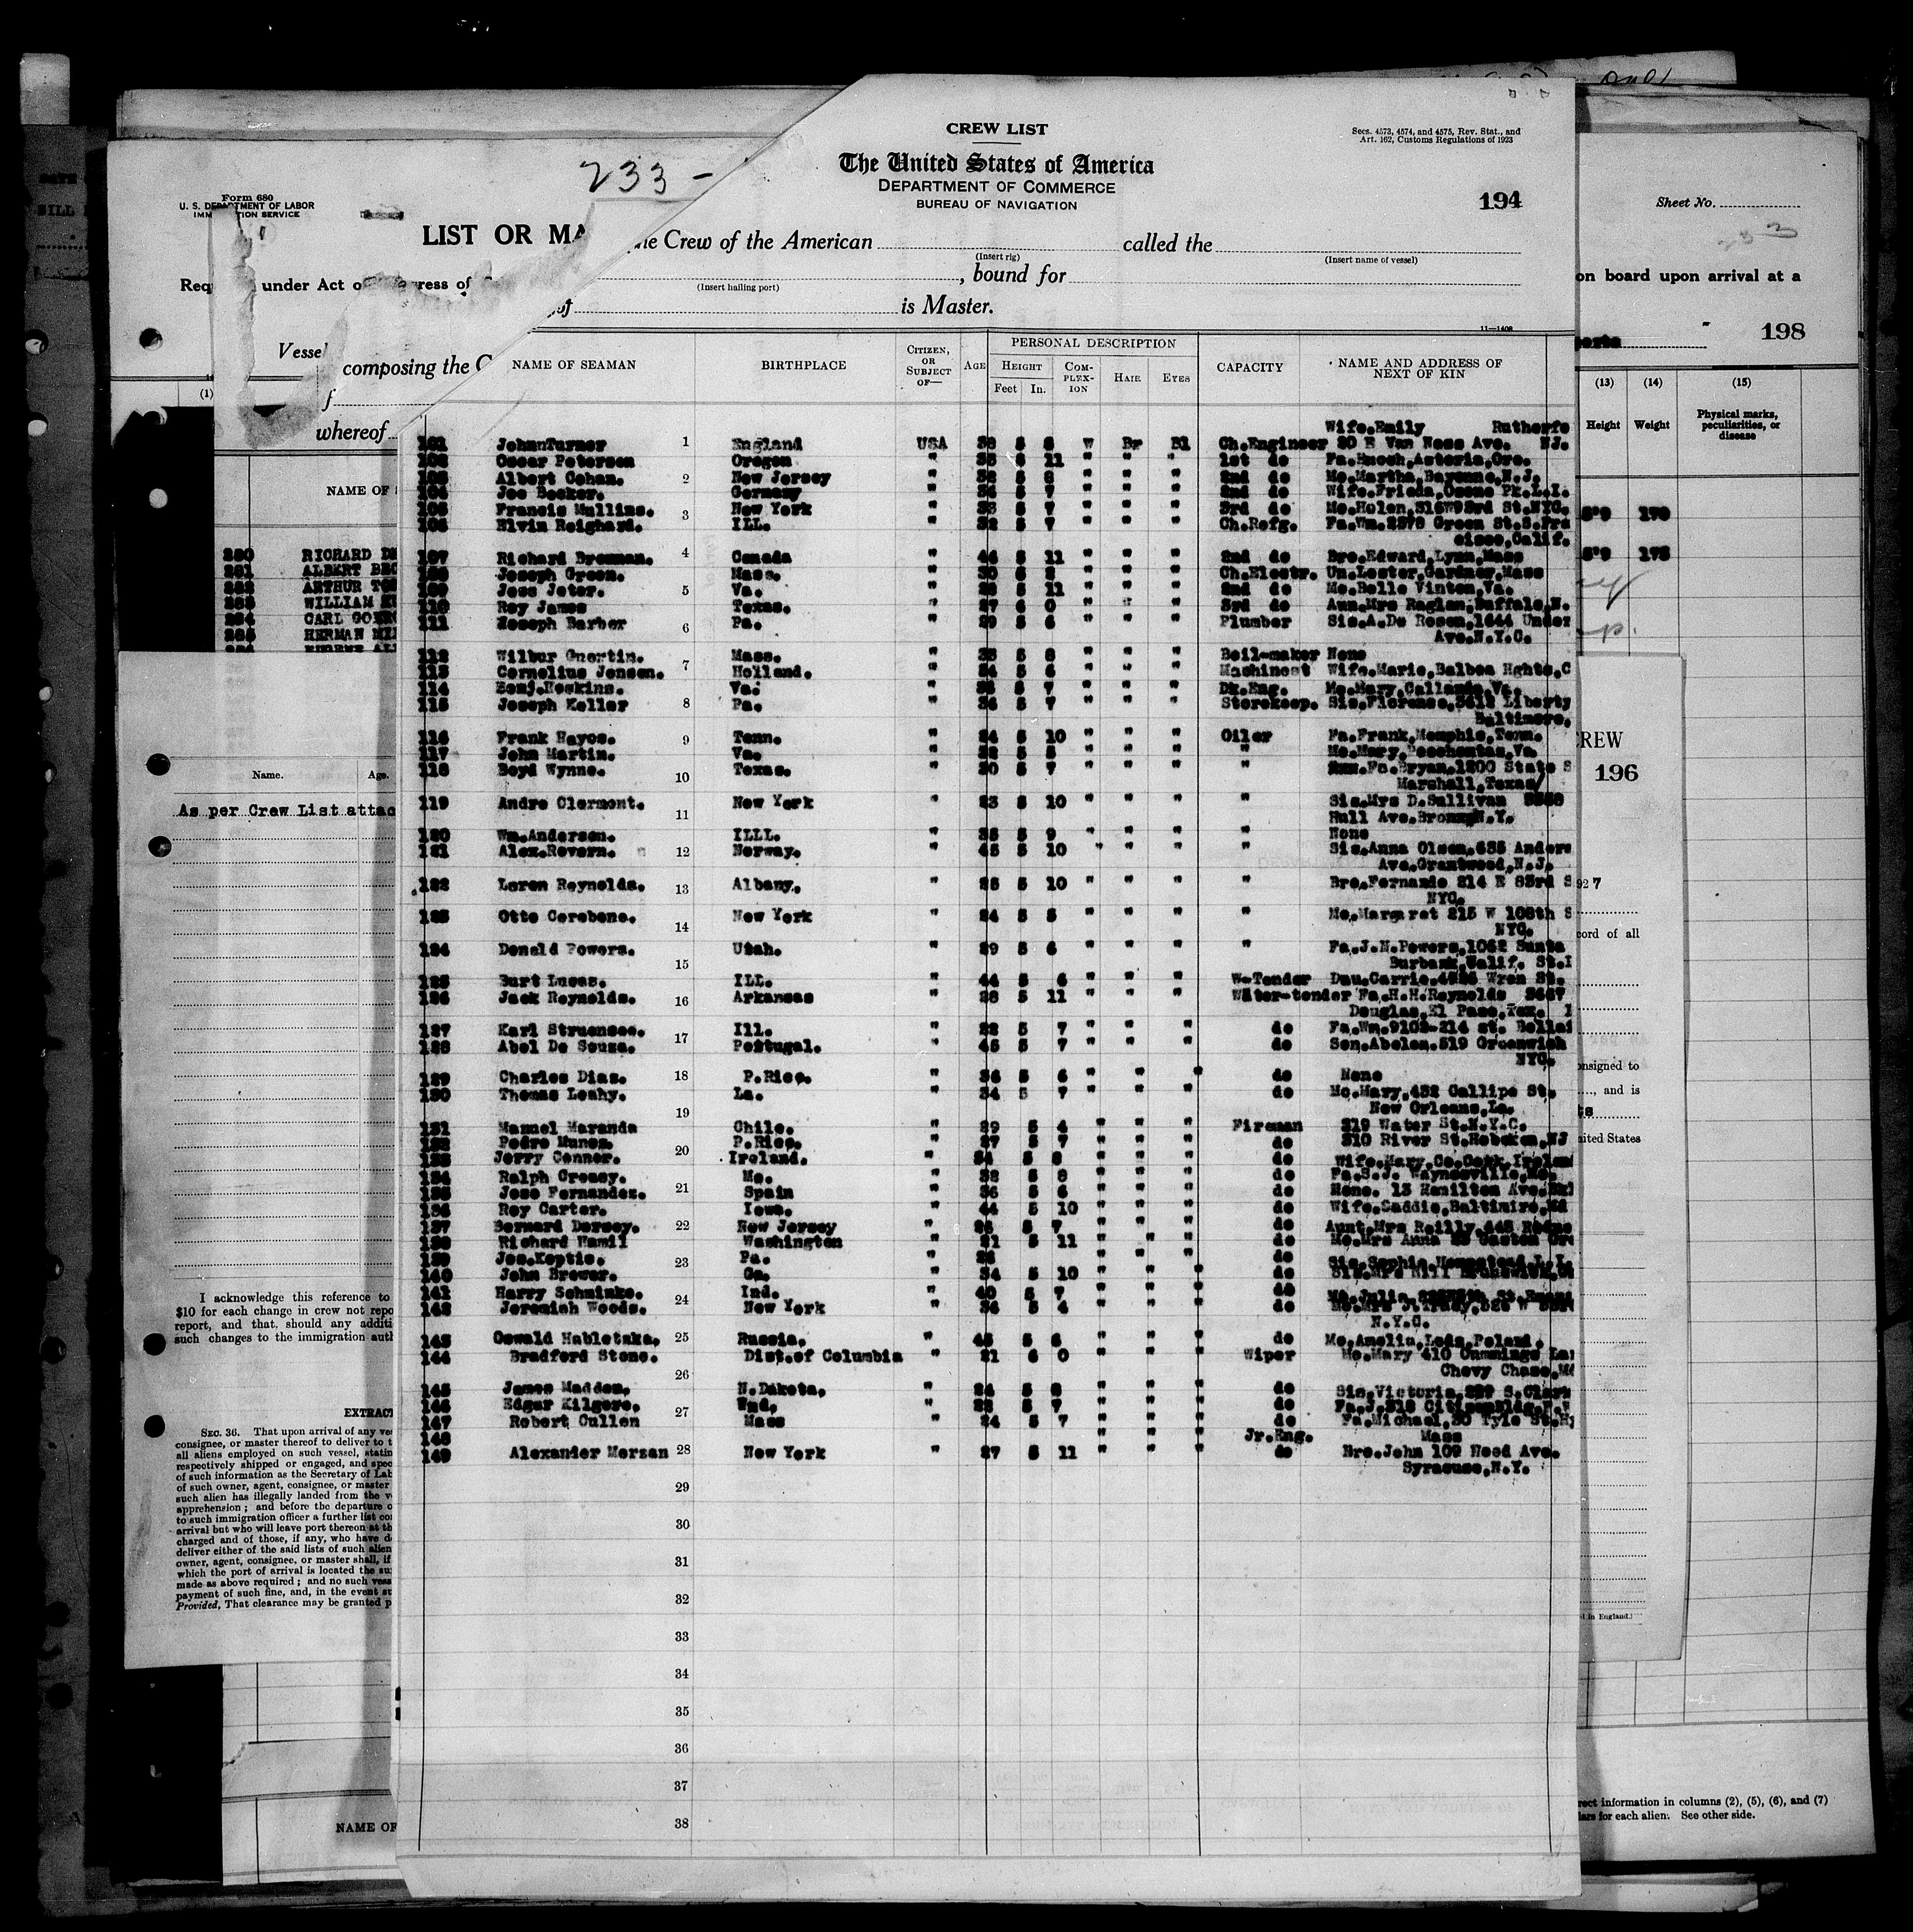 CREW LIST
Secs. 4573, 4574, and 4575, Rev. Stat., and
Art. 162, Customs Regulations of 1923
The United States of America
DEPARTMENT OF COMMERCE
BUREAU OF NAVIGATION
194
233 -
Form 680
U. S. DEPARTMENT OF LABOR
LIST OR MA
he Crew of the American called the
(Insert rig) (Insert name of vessel)
under Act of
, bound for
(Insert hailing port)
of is Master.
11-1408
Sheet No.
on board upon arrival at a
198
Vessel
composing the C
whereof
NAME OF SEAMAN BIRTHPLACE CITIZEN, OR SUBJECT OF— AGE PERSONAL DESCRIPTION CAPACITY NAME AND ADDRESS OF NEXT OF KIN
HEIGHT COMPLEXION HAIR EYES
Feet In.
(1)
(13) (14) (15)
Height Weight Physical marks, peculiarities, or disease
Wife.Emily Rutherfo
101 JohnTurner 1 England USA 38 5 8 W Br Bl Ch.Engineer 20 E Van Ness Ave. NJ.
102 Oscar Peterson Oregon " 11 " " " 1st do Fa.Enoch,Astoria,Ore.
103 Albert Cohan. 2 New Jersey " 5 8 " " " 2nd do Mo.Martha,Bayonne,N.J.
104 Joe Becker. Germany " 5 7 " " " 2nd do Wife.Frieda,Ozone Pk.L.I.
105 Francis Mullins. 3 New York " 5 7 " " " 3rd do Mo.Helen,316W93rd St.NYC.
106 Elvin Reighard. ILL. " 32 5 7 " " " Ch.Refg. Fa.Wm.2378 Green St.S.Fra
cisco,Calif.
107 Richard Brennan. 4 Canada " 44 5 11 " " " 2nd do Bro.Edward,Lynn,Mass
108 Joseph Green. Mass. " 30 " " " Ch.Electr. Un.Lester,Gardner,Mass
109 Jess Jeter. 5 Va. " 5 11 " " " 2nd do Mo.Belle Vinton,Va.
110 Roy James Texas. " 27 6 0 " " " 3rd do Aun.Mrs Raglan,Buffalo,N.
111 Joseph Barber 6 Pa. " 29 5 6 " " " Plumber Sis.A.De Rosen,1644 Under
Ave.N.Y.C.
112 Wilbur Guertin. Mass. " 5 8 " " " Boil-maker None
113 Cornelius Jensen. 7 Holland. " 34 5 6 " " " Machinest Wife.Marie,Balboa Hghts,C
114 Benj.Hoskins. Va. " 5 7 " " " Dk.Eng. Mo.Mary,Callands,Va.
115 Joseph Keller 8 Pa. " 36 5 7 " " " Storekeep. Sis.Florence,3612 Liberty
Baltimore,
116 Frank Hayes. 9 Tenn. " 24 5 10 " " " Oiler Fa.Frank,Memphis,Tenn.
117 John Martin. Va. " 5 " " " " Mo.Mary,Pocahontas,Va.
118 Boyd Wynne. 10 Texas. " 30 5 7 " " " " Fa.Bryan,1200 State S
Marshall,Texas
119 Andre Clermont. 11 New York " 23 5 10 " " " " Sis.Mrs D.Sullivan
Hull Ave.Bronx,N.Y.
120 Wm.Anderson. ILLL. " 5 9 " " " " None
121 Alex.Revern. 12 Norway. " 45 5 10 " " " " Sis.Anna Olsen,635 Anders
Ave.Grantwood,N.J.
122 Loren Reynolds. 13 Albany. " 5 10 " " " " Bro.Fernando 214 E 83rd S
NYC.
123 Otto Cerebone. 14 New York " 24 5 5 " " " " Mo.Margaret 215 W 108th S
NYC.
124 Donald Powers. 15 Utah. " 29 5 6 " " " " Fa.J.N.Powers,1062 Santa
Burbank,Calif. St.
125 Burt Lucas. ILL. " 44 5 6 " " " W-Tender Dau.Carrie,Wren St.
126 Jack Reynolds. 16 Arkansas " 28 5 11 " " " Water-tender Fa.H.H.Reynolds 3667
Douglas,El Paso,Tex.
127 Karl Struensee. 17 Ill. " 22 5 7 " " " do Fa.Wm.9102-214 st. Bellai
128 Abel De Souza. Portugal. " 45 5 7 " " " do Son.Abelen.519 Greenwich
NYC.
129 Charles Dias. 18 P.Rico. " 36 5 6 " " " do None
130 Thomas Leahy. La. " 34 5 7 " " " do Mo.Mary,432 Callipe St.
19 New Orleans,La.
131 Manuel Maranda Chile. " 29 5 4 " " " Fireman 319 Water St.N.Y.C.
132 Pedro Munoz. P.Rico. " 27 5 7 " " " do 310 River St.Hoboken,NJ
133 Jerry Connor. 20 Ireland. " 34 5 8 " " " do Wife.Mary,Co.Cork,Ireland
134 Ralph Creasy. Mo. " 5 8 " " " do Fa.S.J. Waynesville,Mo.
135 Jose Fernandez. 21 Spain " 36 5 6 " " " do None. 13 Hamilton Ave.
136 Roy Carter. Iowa. " 44 5 10 " " " do Wife.Caddie,Baltimire,Md
137 Bernard Dorsey. 22 New Jersey " 5 7 " " " do Aunt.Mrs Reilly,
138 Richard Hamil Washington " 21 5 11 " " " do Mo.Mrs Anna
139 Jos.Koptic. 23 Pa. " " " " do Sis.Sophie,Hempstead,L.I.
140 John Brewer. Ga. " 34 5 10 " " " do
141 Harry Schminke. 24 Ind. " 40 5 7 " " " do
142 Jeremiah Woods. New York " 34 5 4 " " " do
N.Y.C.
143 Oswald Habletaka. 25 Russia. " 45 5 6 " " " do Mo.Amelia,Lodz,Poland.
144 Bradford Stone. Dist.of Columbia " 21 6 0 " " " Wiper Mo.Mary 410 Cummings La
26 Chevy Chase,Md
145 James Madden. N.Dakota. " 24 5 8 " " " do Sis.Victoria, S.Clark
146 Edgar Kilgore. 27 Wnd. " 5 7 " " " do Fa.J.318 Citizens
147 Robert Cullen Mass " 24 5 7 " " " do Fa.Michael,30 Tyle St.
148 " " " Jr.Eng. Mass
149 Alexander Mersan 28 New York " 27 5 11 " " " do Bro.John 109 Wood Ave.
Syracuse,N.Y.
29
30
31
32
33
34
35
36
37
38
NAME OF
280 RICHARD
281 ALBERT
282 ARTHUR
283 WILLIAM
284 CARL
285 HERMAN
5'9 170
5'9 175
Name. Age.
As per Crew List attac
CREW
196
927
cord of all
onsigned to
, and is
ited States
I acknowledge this reference to
$10 for each change in crew not repo
report, and that, should any additi
such changes to the immigration aut
EXTRACT
SEC. 36. That upon arrival of any ves
consignee, or master thereof to deliver to t
all aliens employed on such vessel, statin
respectively shipped or engaged, and spec
of such information as the Secretary of Lab
of such owner, agent, consignee, or master
such alien has illegally landed from the v
apprehension; and before the departure o
to such immigration officer a further list con
arrival but who will leave port thereon at th
charged and of those, if any, who have d
deliver either of the said lists of such alien
owner, agent, consignee, or master shall, if
which the port of arrival is located the su
made as above required; and no such vess
payment of such fine, and, in the event su
Provided, That clearance may be granted p
d in England.)
NAME OF
rect information in columns (2), (5), (6), and (7)
lars for each alien. See other side.